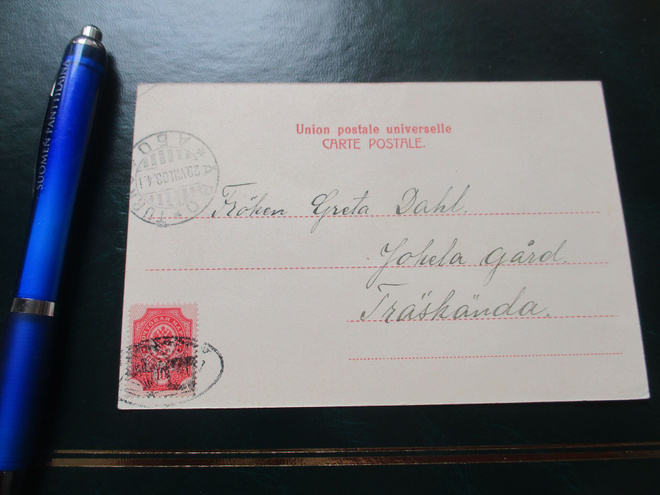 SUOMEN PANTTILAINA
Union postale universelle
CARTE POSTALE.
ÅBO
Fröken Greta Dahl.
Johela gård.
Träskända.